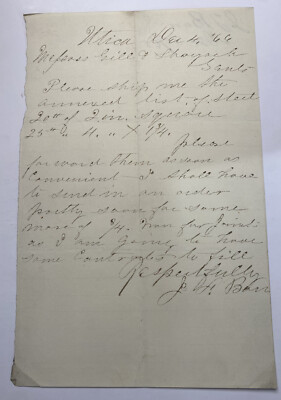 Utica Dec 4, '66
Messrs Gill &
Gents
Please ship me the
annexed list of steel
200# 2 in. Square
25 " 4 " X 1 3/4.
please
forward them as soon as
Convenient I shall have
to send in an order
pretty soon for some
more of 3/4 Iron for Joint
as I am going to have
some Contracts to fill
Respectfully
J. H.